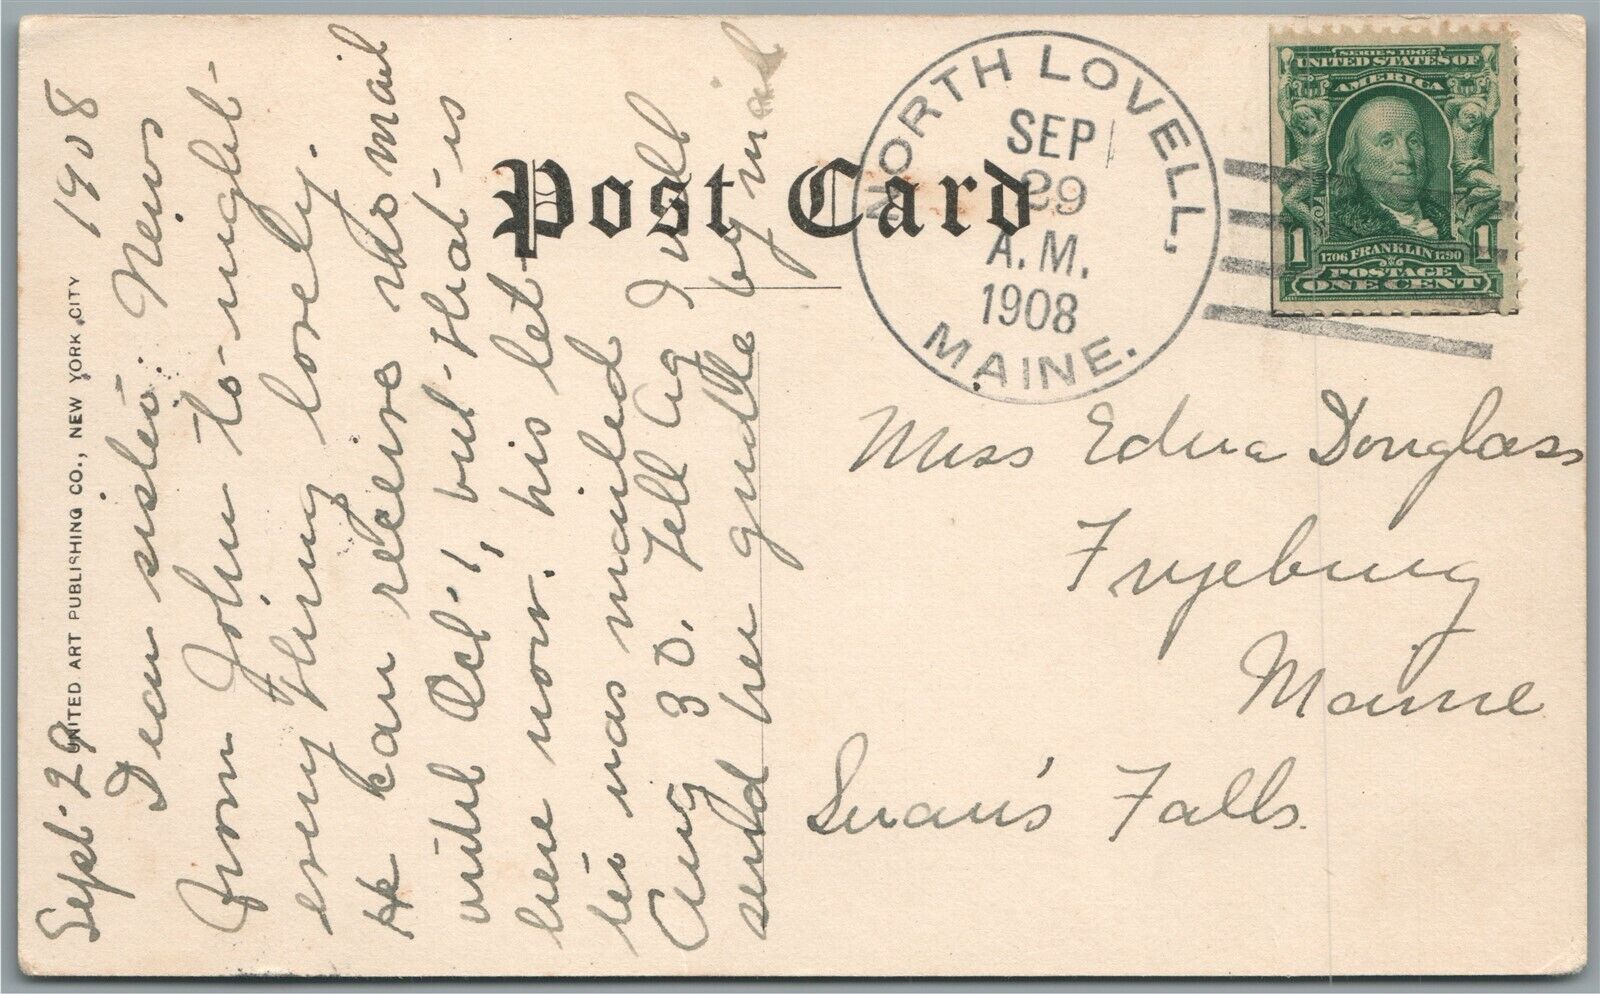 Post Card
NORTH LOVELL,
SEP
29
A.M.
1908
MAINE.
SERIES 1902
UNITED STATES OF
AMERICA
1 1
1706 FRANKLIN 1790
POSTAGE
ONE CENT
UNITED ART PUBLISHING CO., NEW YORK CITY
Sept. 29 1908
Dear sister: News
from John to-night-
every thing lovely.
He can receive no mail
until Oct. 1, but that is
here now. his let-
ter was mailed
Aug 30. Tell Ag I will
send her girdle by mail
Miss Edna Douglass
Fryeburg
Maine
Swan's Falls.